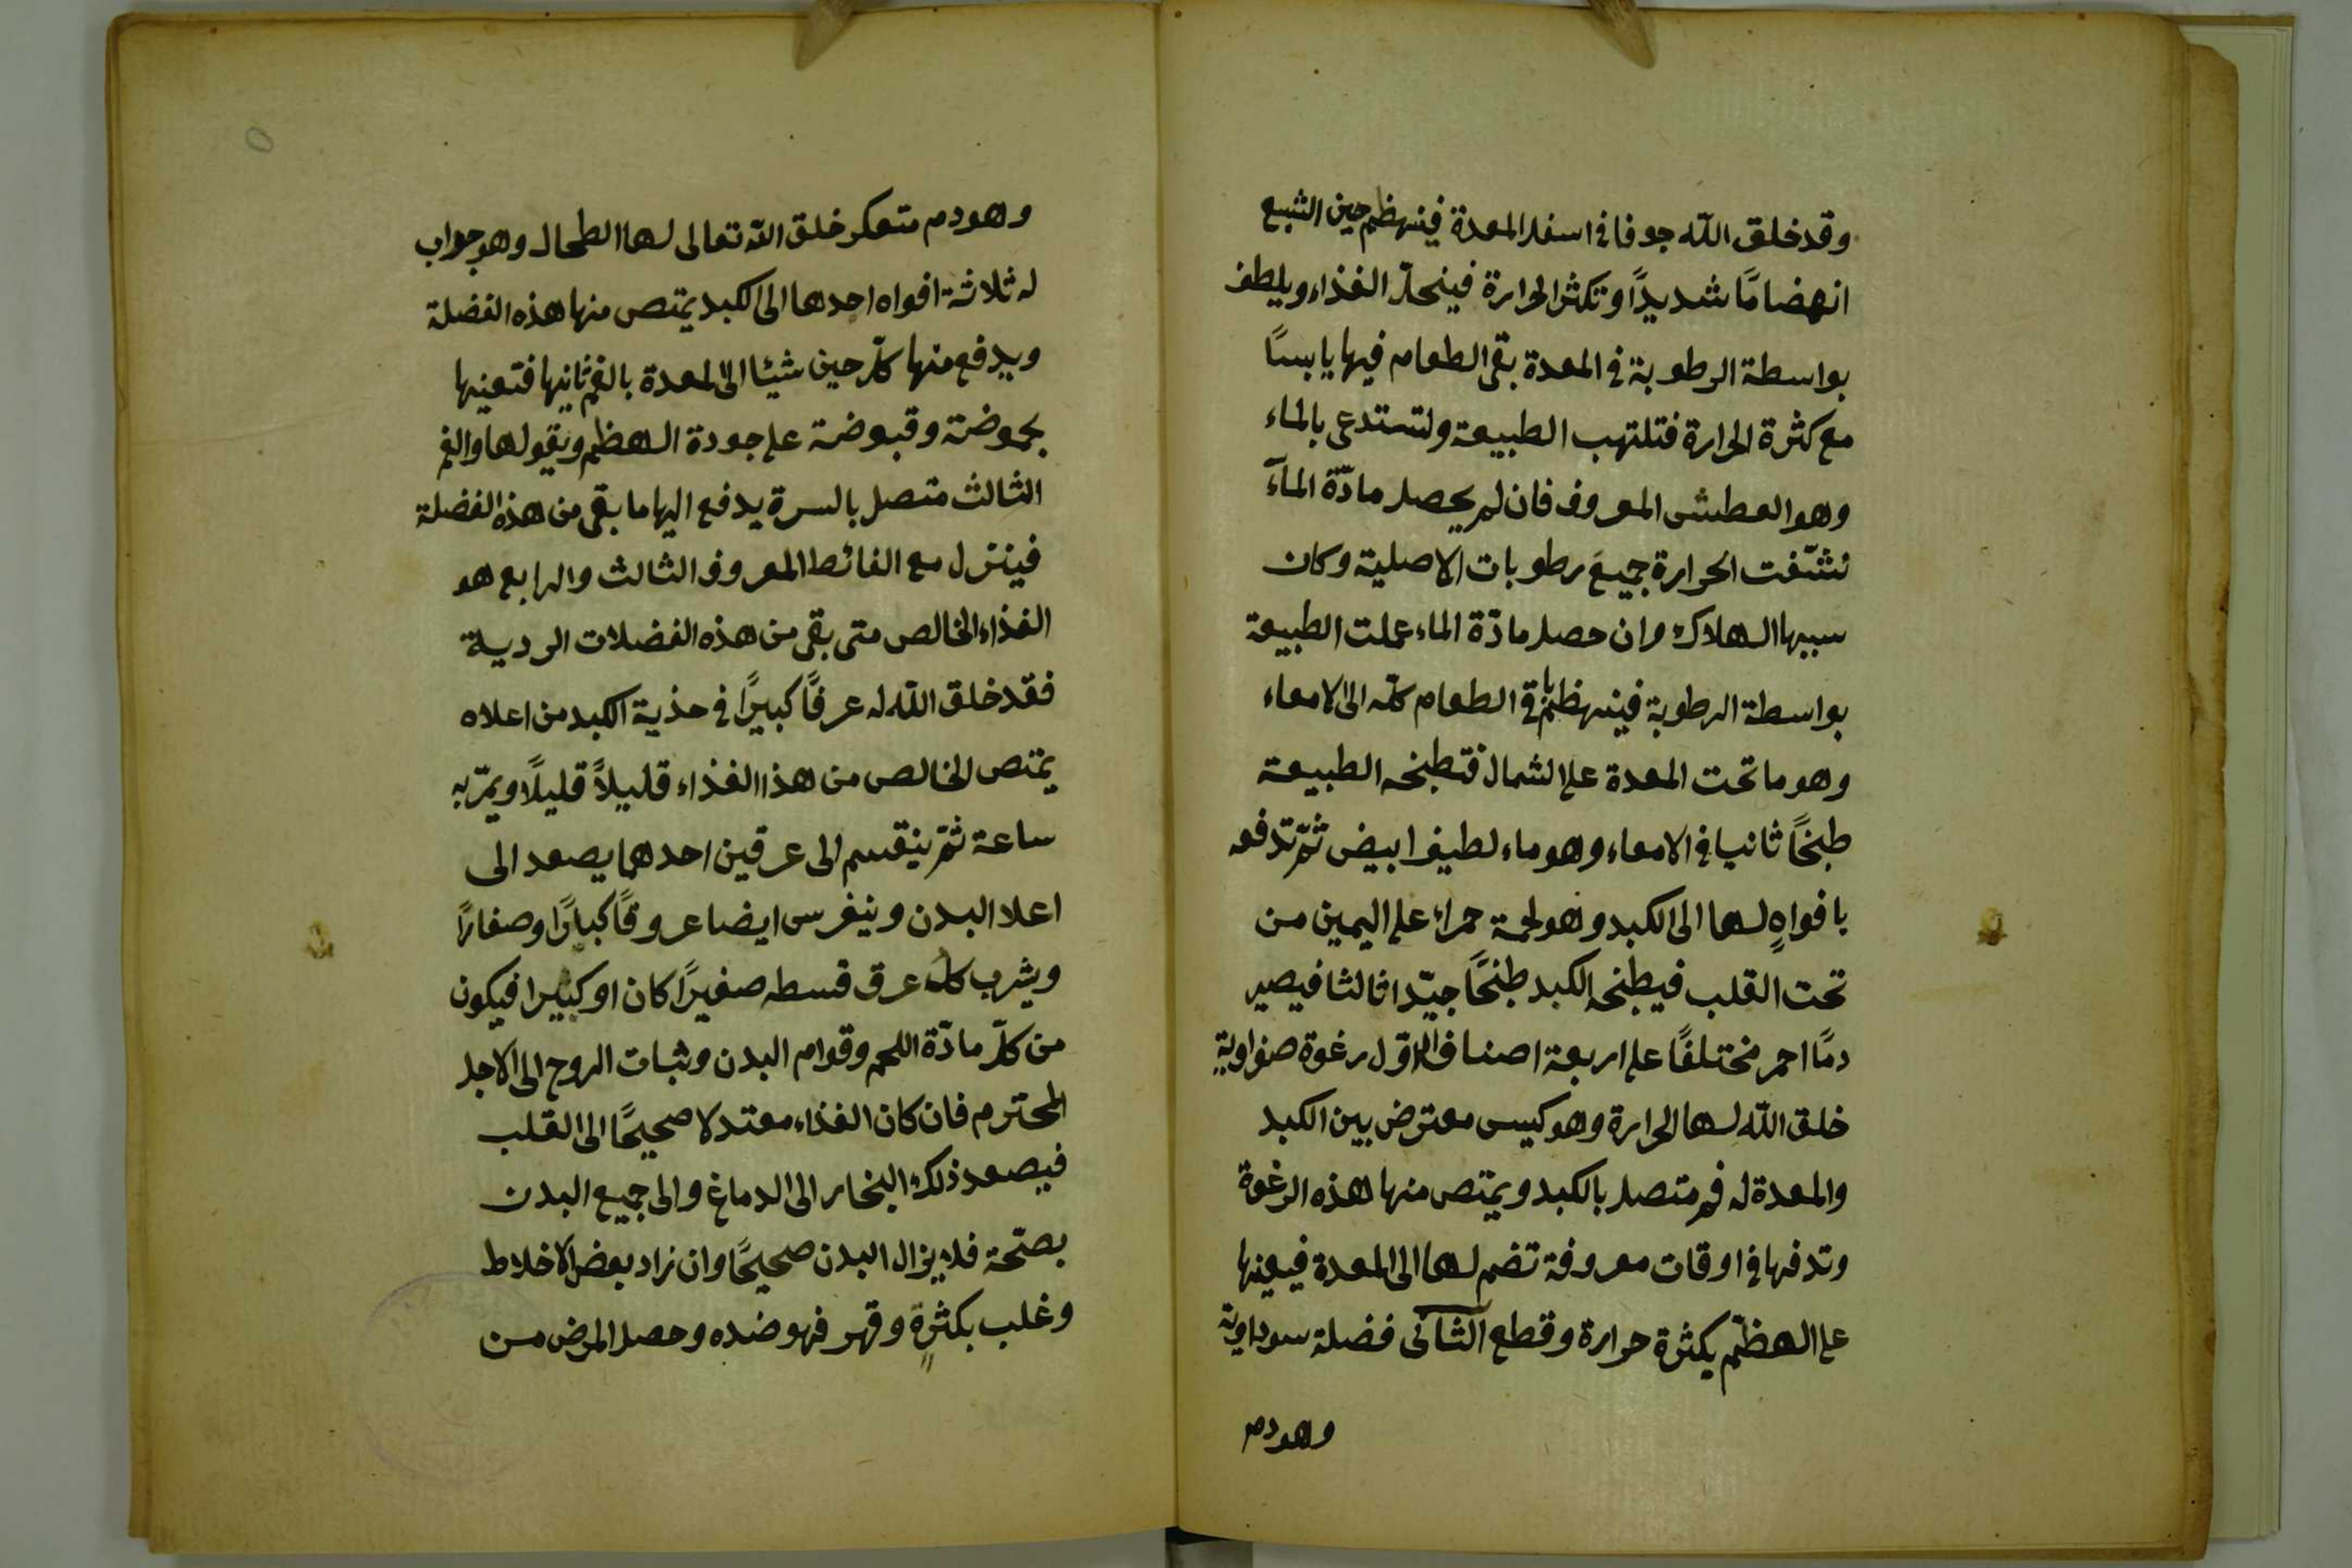 وقد خلق الله جوفا في اسفل المعدة فينهظم حين الشبع
انهضامًا شديدًا وتكثر الحرارة فينحلّ الغذاء ويلطف
بواسطة الرطوبة في المعدة بقى الطعام فيها يابسًا
مع كثرة الحرارة فتلتهب الطبيعة ولتستدعى بالماء
وهو العطش المعروف فان لم يحصل مادّة المآء
نشّفت الحرارة جميعَ رطوبات الاصلية وكان
سببها الهلاك وان حصل مادّة الماء عملت الطبيعة
بواسطة الرطوبة فينهظم باقى الطعام كلّه الى الامعاء
وهو ما تحت المعدة على الشمال فتطبخه الطبيعة
طبخًا ثانيا في الامعاء وهو ماء لطيف ابيض ثمّ تدفعه
بافواهٍ لها الى الكبد وهو لحمة حمراء على اليمين من
تحت القلب فيطبخه الكبد طبخًا جيّدا ثالثا فيصير
دمًا احمر مختلفًا على اربعة اصناف الاوّل رغوة صفراوية
خلق الله لها الحرارة وهو كيس معترض بين الكبد
والمعدة له فم متصل بالكبد ويمتص منها هذه الرغوة
وتدفها في اوقات معروفة تضم لها الى المعدة فيعينها
على الهظم بكثرة حرارة وقطع الثانى فضلة سوداوية
وهو دم
وهو دم متعكر خلق الله تعالى لها الطحال وهو جواب
له ثلاثة افواه احدها الى الكبد يمتص منها هذه الفضلة
ويدفع منها كلّ حين شيئا الى المعدة بالفم ثانيها فتعينها
بحموضة وقبوضة على جودة الهظم ويقولها والفم
الثالث متصل بالسرة يدفع اليها ما بقى من هذه الفضلة
فينزل مع الغائط المعروف الثالث والرابع هو
الغذاء الخالص متى بقى من هذه الفضلات الردية
فقد خلق الله له عرقًا كبيرًا في حذية الكبد من اعلاه
يمتص الخالص من هذا الغذاء قليلاً قليلًا ويمرّ به
ساعة ثمّ ينقسم الى عرقين احدهما يصعد الى
اعلا البدن وينغرس ايضا عروقًا كبارًا وصغارًا
ويشرب كل عرق قسطه صغيرًا كان او كبيرا فيكون
من كلّ مادّة اللحم وقوام البدن وثبات الروح الى الاجل
المحترم فان كان الغذاء معتدلا صحيحًا الى القلب
فيصعد ذلك البخار الى الدماغ والى جميع البدن
بصّحة فلا يزال البدن صحيحًا وان زاد بعض الاخلاط
وغلب بكثرةٍ وقهر فهو ضده وحصل المرض من